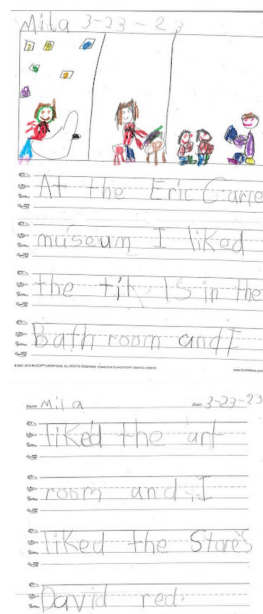 Mila 3-23-23
At the Eric Carle
museum I liked
the tils in the
Bathroom and I
Mila 3-23-23
liked the art
room and I
liked the Store's
David red.